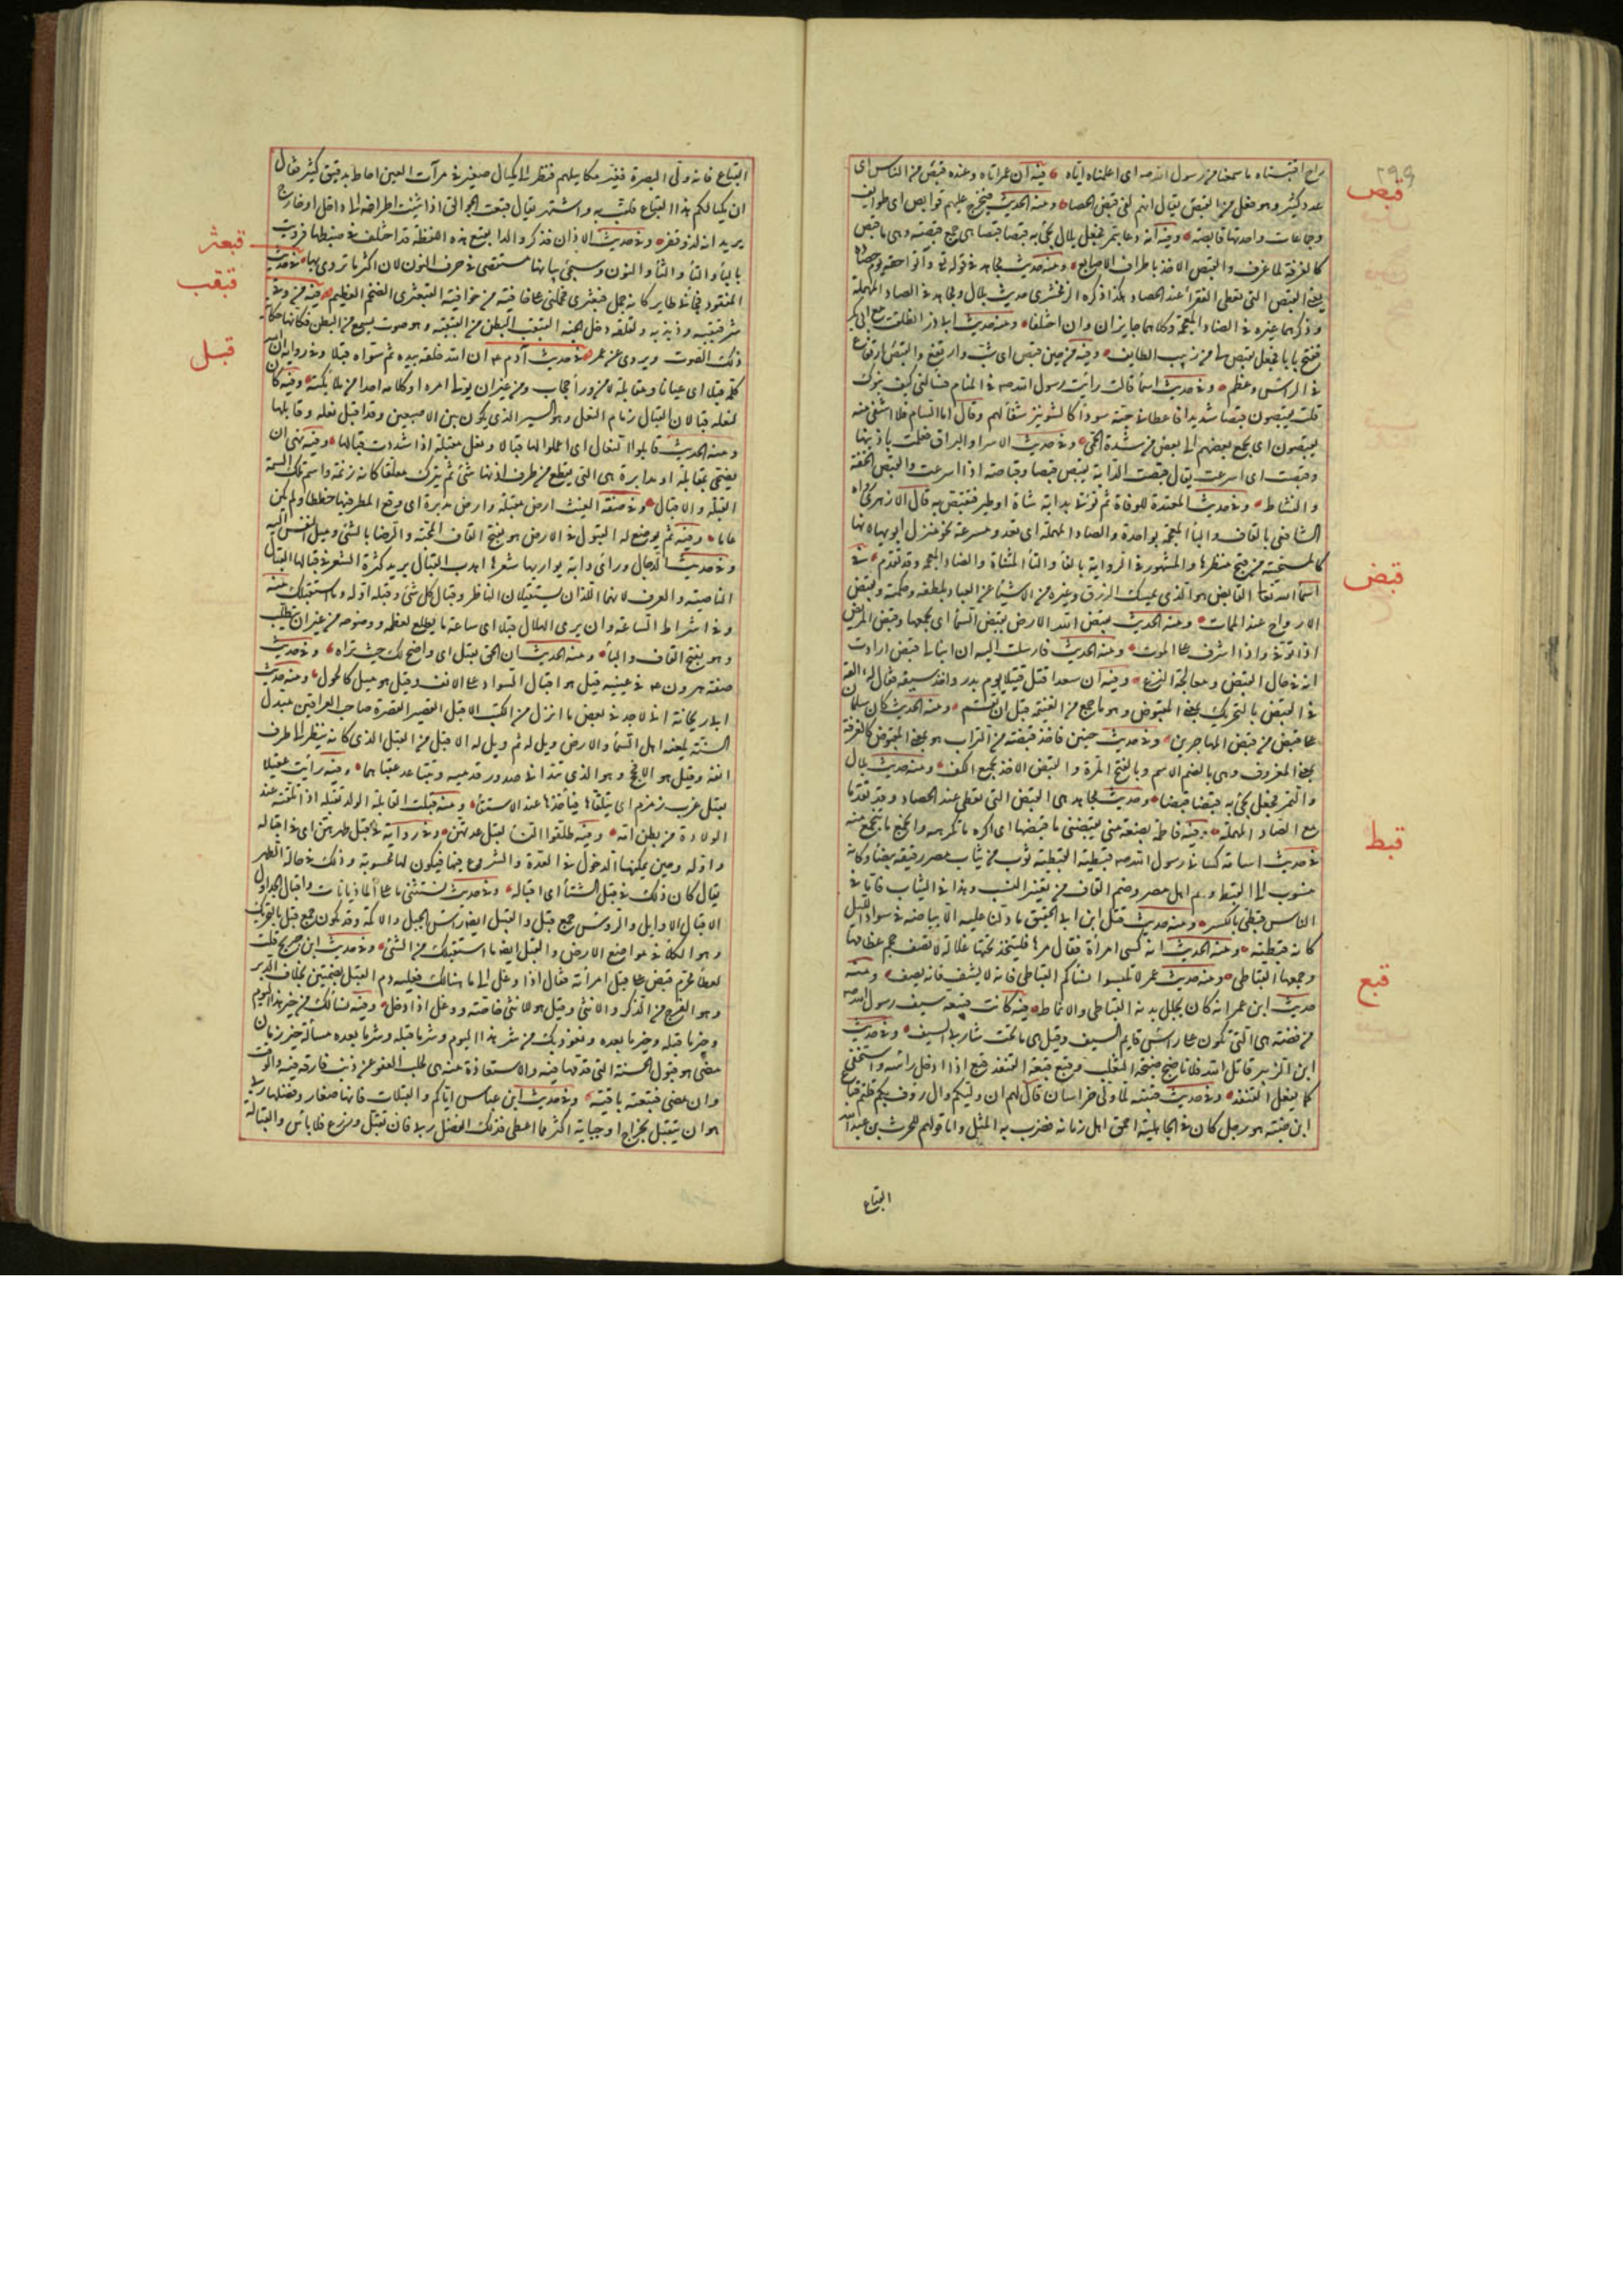 ٢٩٩
قبص
قبض
قبط
قبع
براح اقبسناه ما سمعنا من رسول الله صه اى اعلمناه اياه فيه ان عمر اتاه وعنده قبص من الناس اى
عدد كثير وهو فعل من القبص يقال انهم لفى قبص الحصا ومنه الحديث فيخرج عليهم قوابص اى طوايف
وجماعات واحدتها قابصة وفيه انه دعا بتمر فجعل بلال يجئ به قبصا قبصا هى جمع قبصة وهى ما قبص
كالغرفة لما غرف والقبص الاخذ باطراف الاصابع ومنه حديث مجاهد فى قوله تع واتوا حقه يوم حصاده
يعنى القبص التى تعطى الفقرأ عند الحصاد هكذا ذكره الزمخشرى حديث بلال ومجاهد فى الصاد المهملة
وذكرهما غيره فى الضاد المعجمة وكلاهما جايزان وان اختلفا ومنه حديث ابى ذر انطلقت مع ابى بكر
ففتح بابا فجعل يقبص لى من زبيب الطايف وفيه من حين قبص اى شب وارتفع والقبص ارتفاع
فى الراس وعظم وفى حديث اسمأ قالت رايت رسول الله صه فى المنام فسألنى كيف بنوك
قلت يقبصون قبصا شديدا فاعطانى حبة سودأ كالشونيز شفأ لهم وقال اما السام فلا اشفى منه
يقبصون اى يجمع بعضهم الى بعض من شدة الحمى وفى حديث الاسرا والبراق فعملت باذنيها
وقبصت اى اسرعت يقال قبصت الدابة تقبص قباصة وقبصا اذا اسرعت والقبص الخفة
والنشاط وفى حديث المعتدة للوفاة ثم تؤتى بدابة شاة او طير فتقبص به قال الازهرى رواه
الشافعى بالقاف والبأ المعجمة بواحدة والصاد المهملة اى تعدو مسرعة نحو منزل ابويها لانها
كالمستحية من قبح منظرها والمشهور فى الرواية بالفأ والتأ المثناة والضاد المعجمة وقد تقدم فى
اسمأ الله تعا القابض هو الذى يمسك الرزق وغيره من الاشيأ عن العباد بلطفه وحكمته ويقبض
الارواح عند الممات ومنه الحديث يقبض الله الارض ويقبض السمأ اى يجمعها وقبض المريض
اذا توفى واذا اشرف على الموت ومنه الحديث فارسلت اليه ان ابنا لى قبض ارادت
انه فى حال القبض ومعالجة النزع وفيه ان سعدا قتل قتيلا يوم بدر واخذ سيفه فقال له القه
فى القبض بالتحريك بمعنى المقبوض وهو ما جمع من الغنيمة قبل ان تقسم ومنه الحديث كان سلمان
على قبض من قبض المهاجرين وفى حديث حنين فاخذ قبضة من التراب هو بمعنى المقبوض كالغرفة
بمعنى المغروف وهى بالضم الاسم وبالفتح المرة والقبض الاخذ بجميع الكف ومنه حديث بلال
والتمر فجعل يجئ به قبضا قبضا وحديث مجاهد هى القبض التى تعطى عند الحصاد وقد تقدما
مع الصاد المهملة وفيه فاطمة بضعة منى يقبضنى ما قبضها اى اكره ما تكرهه وانجمع مما تنجمع منه
فى حديث اسامة كسانى رسول الله صه قبطية القبطية ثوب من ثياب مصر رقيقة بيضأ وكانه
منسوب الى القبط وهم اهل مصر وضم القاف من تغيير النسب وهذا فى الثياب فاما فى
الناس فقبطى بالكسر ومنه حديث قتل ابن ابى الحقيق ما دلنا عليه الا بياضه فى سواد الليل
كانه قبطية ومنه الحديث انه كسى امرأة فقال مرها فلتتخذ تحتها غلالة لا تصف حجم عظامها
وجمعها القباطى ومنه حديث عمر لا تلبسوا نسأكم القباطى فانه لا يشف فانه يصف ومنه
حديث ابن عمر انه كان يجلل بدنه القباطى والانماط فيه كانت قبيعة سيف رسول الله صه
من فضة هى التى تكون على راس قايم السيف وقيل هى ما تحت شاربى السيف وفى حديث
ابن الزبير قاتل الله فلانا ضبح ضبحة الثعلب وقبع قبعة القنفذ قبع اذا ادخل راسه واستخفى
كما يفعل القنفذ وفى حديث قتيبة لما ولى خراسان قال لهم ان وليكم وال رؤف بكم قلتم قباع
ابن ضبة هو رجل كان فى الجاهلية احمق اهل زمانه فضرب به المثل واما قولهم للحرث بن عبد الله
القباع
قبعثر
قبقب
قبل
القباع فانه ولى البصرة فغير مكاييلهم فنظر الى مكيال صغير فى مرآت العين احاط بدقيق كثير فقال
ان مكيالكم هذا القباع فلقب به واشتهر يقال قبعت الجوالق اذا ثنيت اطرافه الى داخل او خارج
يريد انه لذو قعر وفى حديث الاذان فذكروا له القبع هذه اللفظة قد اختلف فى ضبطها فرويت
بالبأ والتأ والثأ والنون وسيجئ بيانها مستقصى فى حرف النون لان اكثر ما تروى بها فى حديث
المفقود فجأنى طاير كانه جمل قبعثرى فحملنى على خافية من خوافيه القبعثرى الضخم العظيم فيه من وقى
شر قبقبه وذبذبه ولقلقه دخل الجنة القبقب البطن من القبقبة وهو صوت يسمع من البطن فكانها حكاية
ذلك الصوت ويروى عن عمر فى حديث آدم عم ان الله خلقه بيده ثم سواه قبلا وفى رواية ان الله
كلمه قبلا اى عيانا ومقابلة لا من ورأ حجاب ومن غير ان يولى امره او كلامه احدا من ملائكته وفيه كان
لنعله قبالان القبال زمام النعل وهو السير الذى يكون بين الاصبعين وقد اقبل نعله وقابلها
ومنه الحديث قابلوا النعال اى اعملوا لها قبالا ونعل مقبلة اذا شددت قبالها وفيه نهى ان
يضحى بمقابلة او مدابرة هى التى يقطع من طرف اذنها شئ ثم يترك معلقا كانه زنمة واسم تلك السمة
القبلة والاقبال وفى صفة الغيث ارض مقبلة وارض مدبرة اى وقع المطر فيها خططا ولم يكن
عاما وفيه ثم يوضع له القبول فى الارض هو بفتح القاف المحبة والرضا بالشئ وميل النفس اليه
وفى حديث الدجال ورأى دابة يواريها شعرها اهدب القبال يريد كثرة الشعر فى قبالها القبال
الناصية والعرف لانهما اللذان يستقبلان الناظر وقبال كل شئ وقبله اوله وما استقبلك منه
وفى اشراط الساعة وان يرى الهلال قبلا اى ساعة ما يطلع لعظمه ووضوحه من غير ان يتطلب
وهو بفتح القاف والبأ ومنه الحديث ان الحق بقبل اى واضح لك حيث تراه وفى حديث
صفة هرون عم فى عينيه قبل هو اقبال السواد على الانف وقيل هو ميل كالحول ومنه حديث
ابى ريحانة انى لاجد فى بعض ما انزل من الكتب الاقبل القصير القصرة صاحب العراقين مبدل
السنة يلعنه اهل السمأ والارض ويل له ثم ويل له الاقبل من القبل الذى كانه ينظر الى طرف
انفه وقيل هو الافحج وهو الذى تتدانى صدور قدميه وتتباعد عقباهما وفيه رايت عقيلا
يقبل غرب زمزم اى يتلقاها فيأخذها عند الاستقأ ومنه قبلت القابلة الولد تقبله اذا تلقته عند
الولادة من بطن امه وفيه طلقوا النسأ لقبل عدتهن وفى رواية فى قبل طهرهن اى فى اقباله
واوله وحين يمكنها الدخول فى العدة والشروع فيها فيكون لها محسوبة وذلك فى حالة الطهر
يقال كان ذلك فى قبل الشتأ اى اقباله وفى حديث نستثنى ما على الماذيانات واقبال الجداول
الاقبال الاوايل والروس جمع قبل والقبل ايضا راس الجبل والاكمة وقد يكون جمع قبل بالتحريك
وهو الكلأ فى مواضع الارض والقبل ايضا ما استقبلك من الشئ وفى حديث ابن جريج قلت
لعطأ محرم قبض على قبل امرأته فقال اذا وغل الى ما هنالك فعليه دم القبل بضمتين خلاف الدبر
وهو الفرج من الذكر والانثى وقيل هو للانثى خاصة ووغل اذا دخل وفيه نسألك من خير هذا اليوم
وخير ما قبله وخير ما بعده ونعوذ بك من شر هذا اليوم وشر ما قبله وشر ما بعده مسألة خير زمان
مضى هو قبول الحسنة التى قدمها فيه والاستعاذة منه هى طلب العفو عن ذنب قارفه فيه والوقت
وان مضى فتبعته باقية وفى حديث ابن عباس اياكم والقبالات فانها صغار وفضلها ربا
هو ان يتقبل بخراج او جباية اكثر مما اعطى فذلك الفضل ربا فان تقبل وزرع فلا باس والقبالة